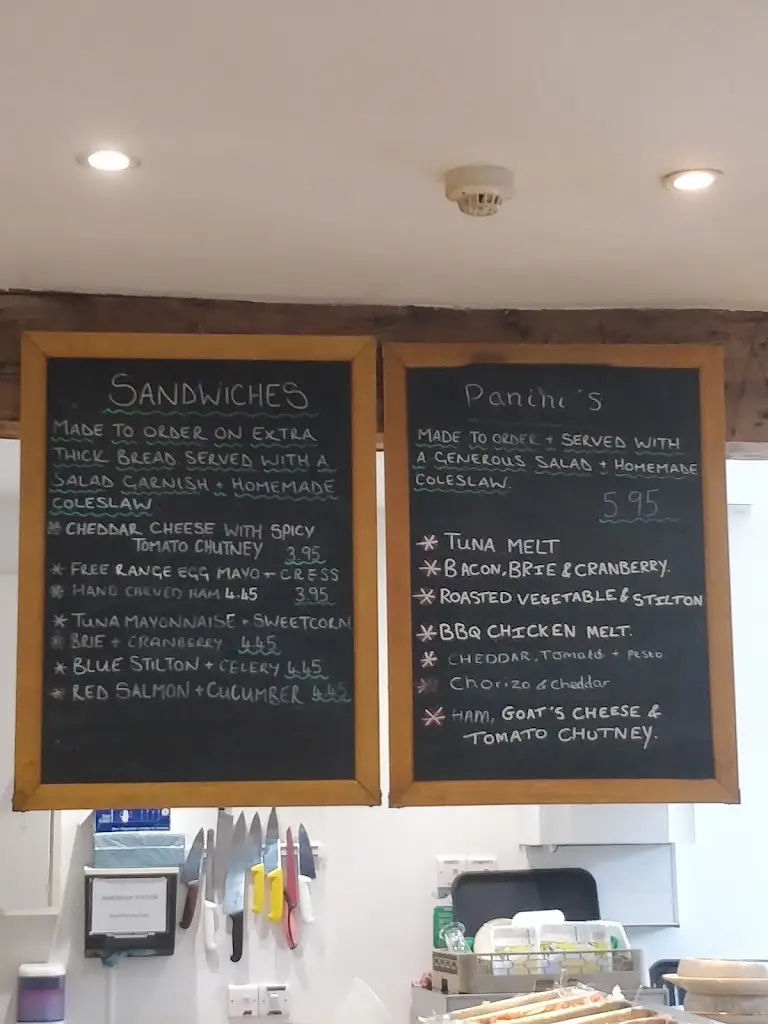 SANDWICHES
MADE TO ORDER ON EXTRA
THICK BREAD SERVED WITH A
SALAD GARNISH + HOMEMADE
COLESLAW
* CHEDDAR CHEESE WITH SPICY
TOMATO CHUTNEY 3.95
* FREE RANGE EGG MAYO + CRESS
3.95
* HAND CARVED HAM 4.45
* TUNA MAYONNAISE + SWEETCORN
* BRIE + CRANBERRY 4.45
* BLUE STILTON + CELERY 4.45
* RED SALMON + CUCUMBER 4.45
Panini's
MADE TO ORDER + SERVED WITH
A GENEROUS SALAD + HOMEMADE
COLESLAW.
5.95
* TUNA MELT
* BACON, BRIE & CRANBERRY.
* ROASTED VEGETABLE & STILTON
* BBQ CHICKEN MELT.
* CHEDDAR, Tomato + Pesto
* Chorizo & Cheddar
* HAM, GOAT'S CHEESE &
TOMATO CHUTNEY.